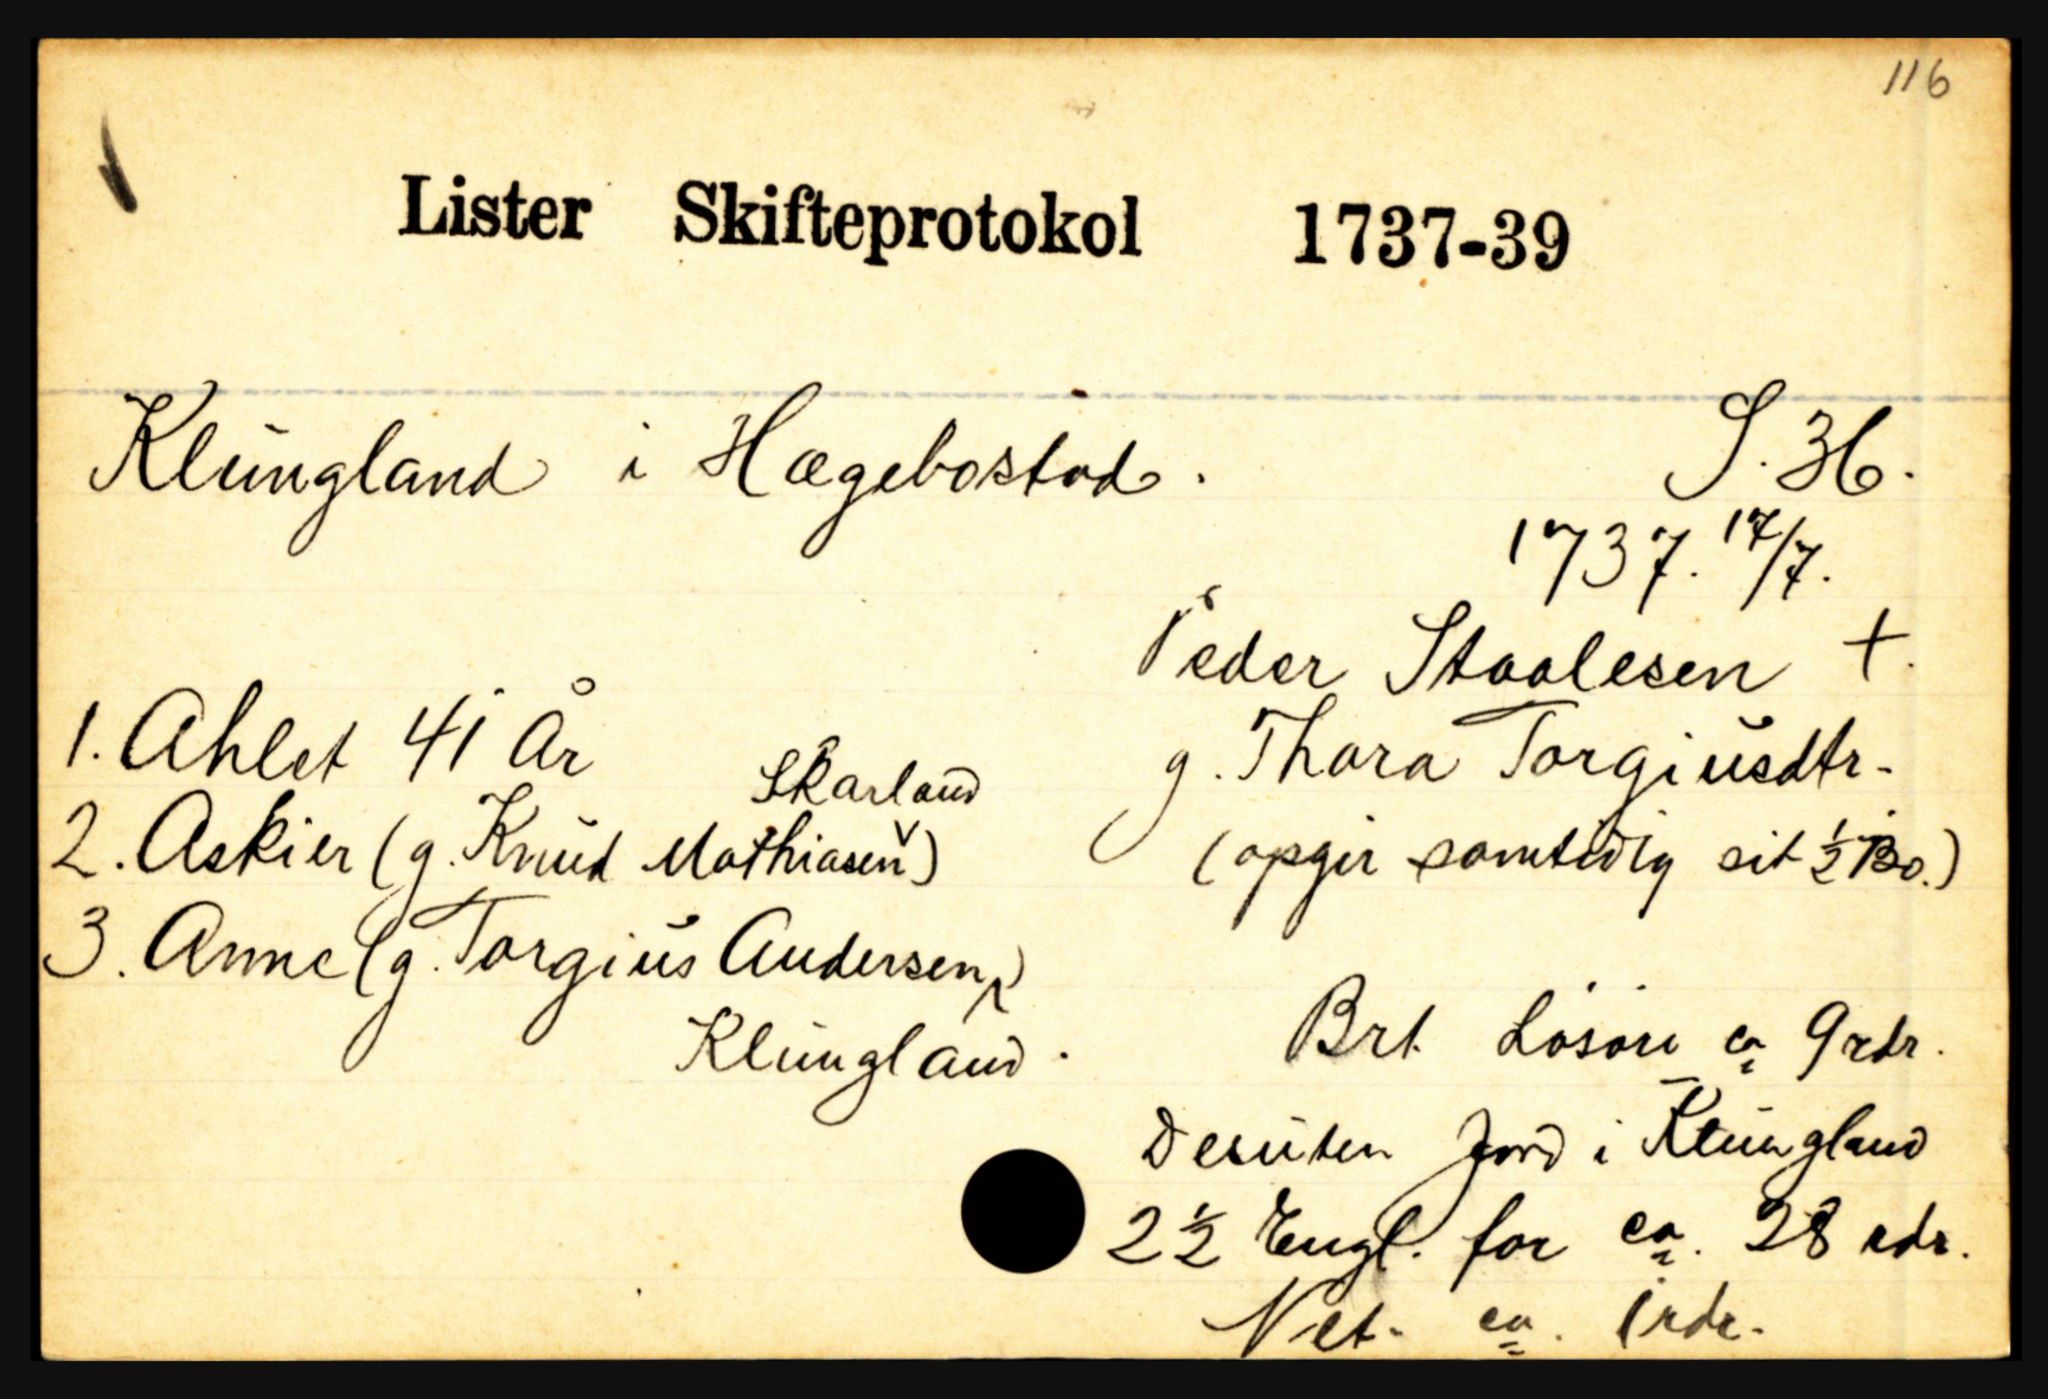 116
Lister Skifteprotokol 1737-39
Klungland i Hægebostad. S. 36.
1737. 17/7.
Peder Staalesen †.
g. Thora Torgiusdtr.
(opgir samtidig sit ½ Bo.)
1. Ahlet 41 År
2. Askier (g. Knud Mathiasen Skarland)
3. Anne (g. Torgius Andersen,)
Klungland.
Brt. Løsøre ca 9 rdr.
Desuten Jord i Klungland
2½ Engl. for ca. 28 rdr.
Net. ca. 1 rdr.